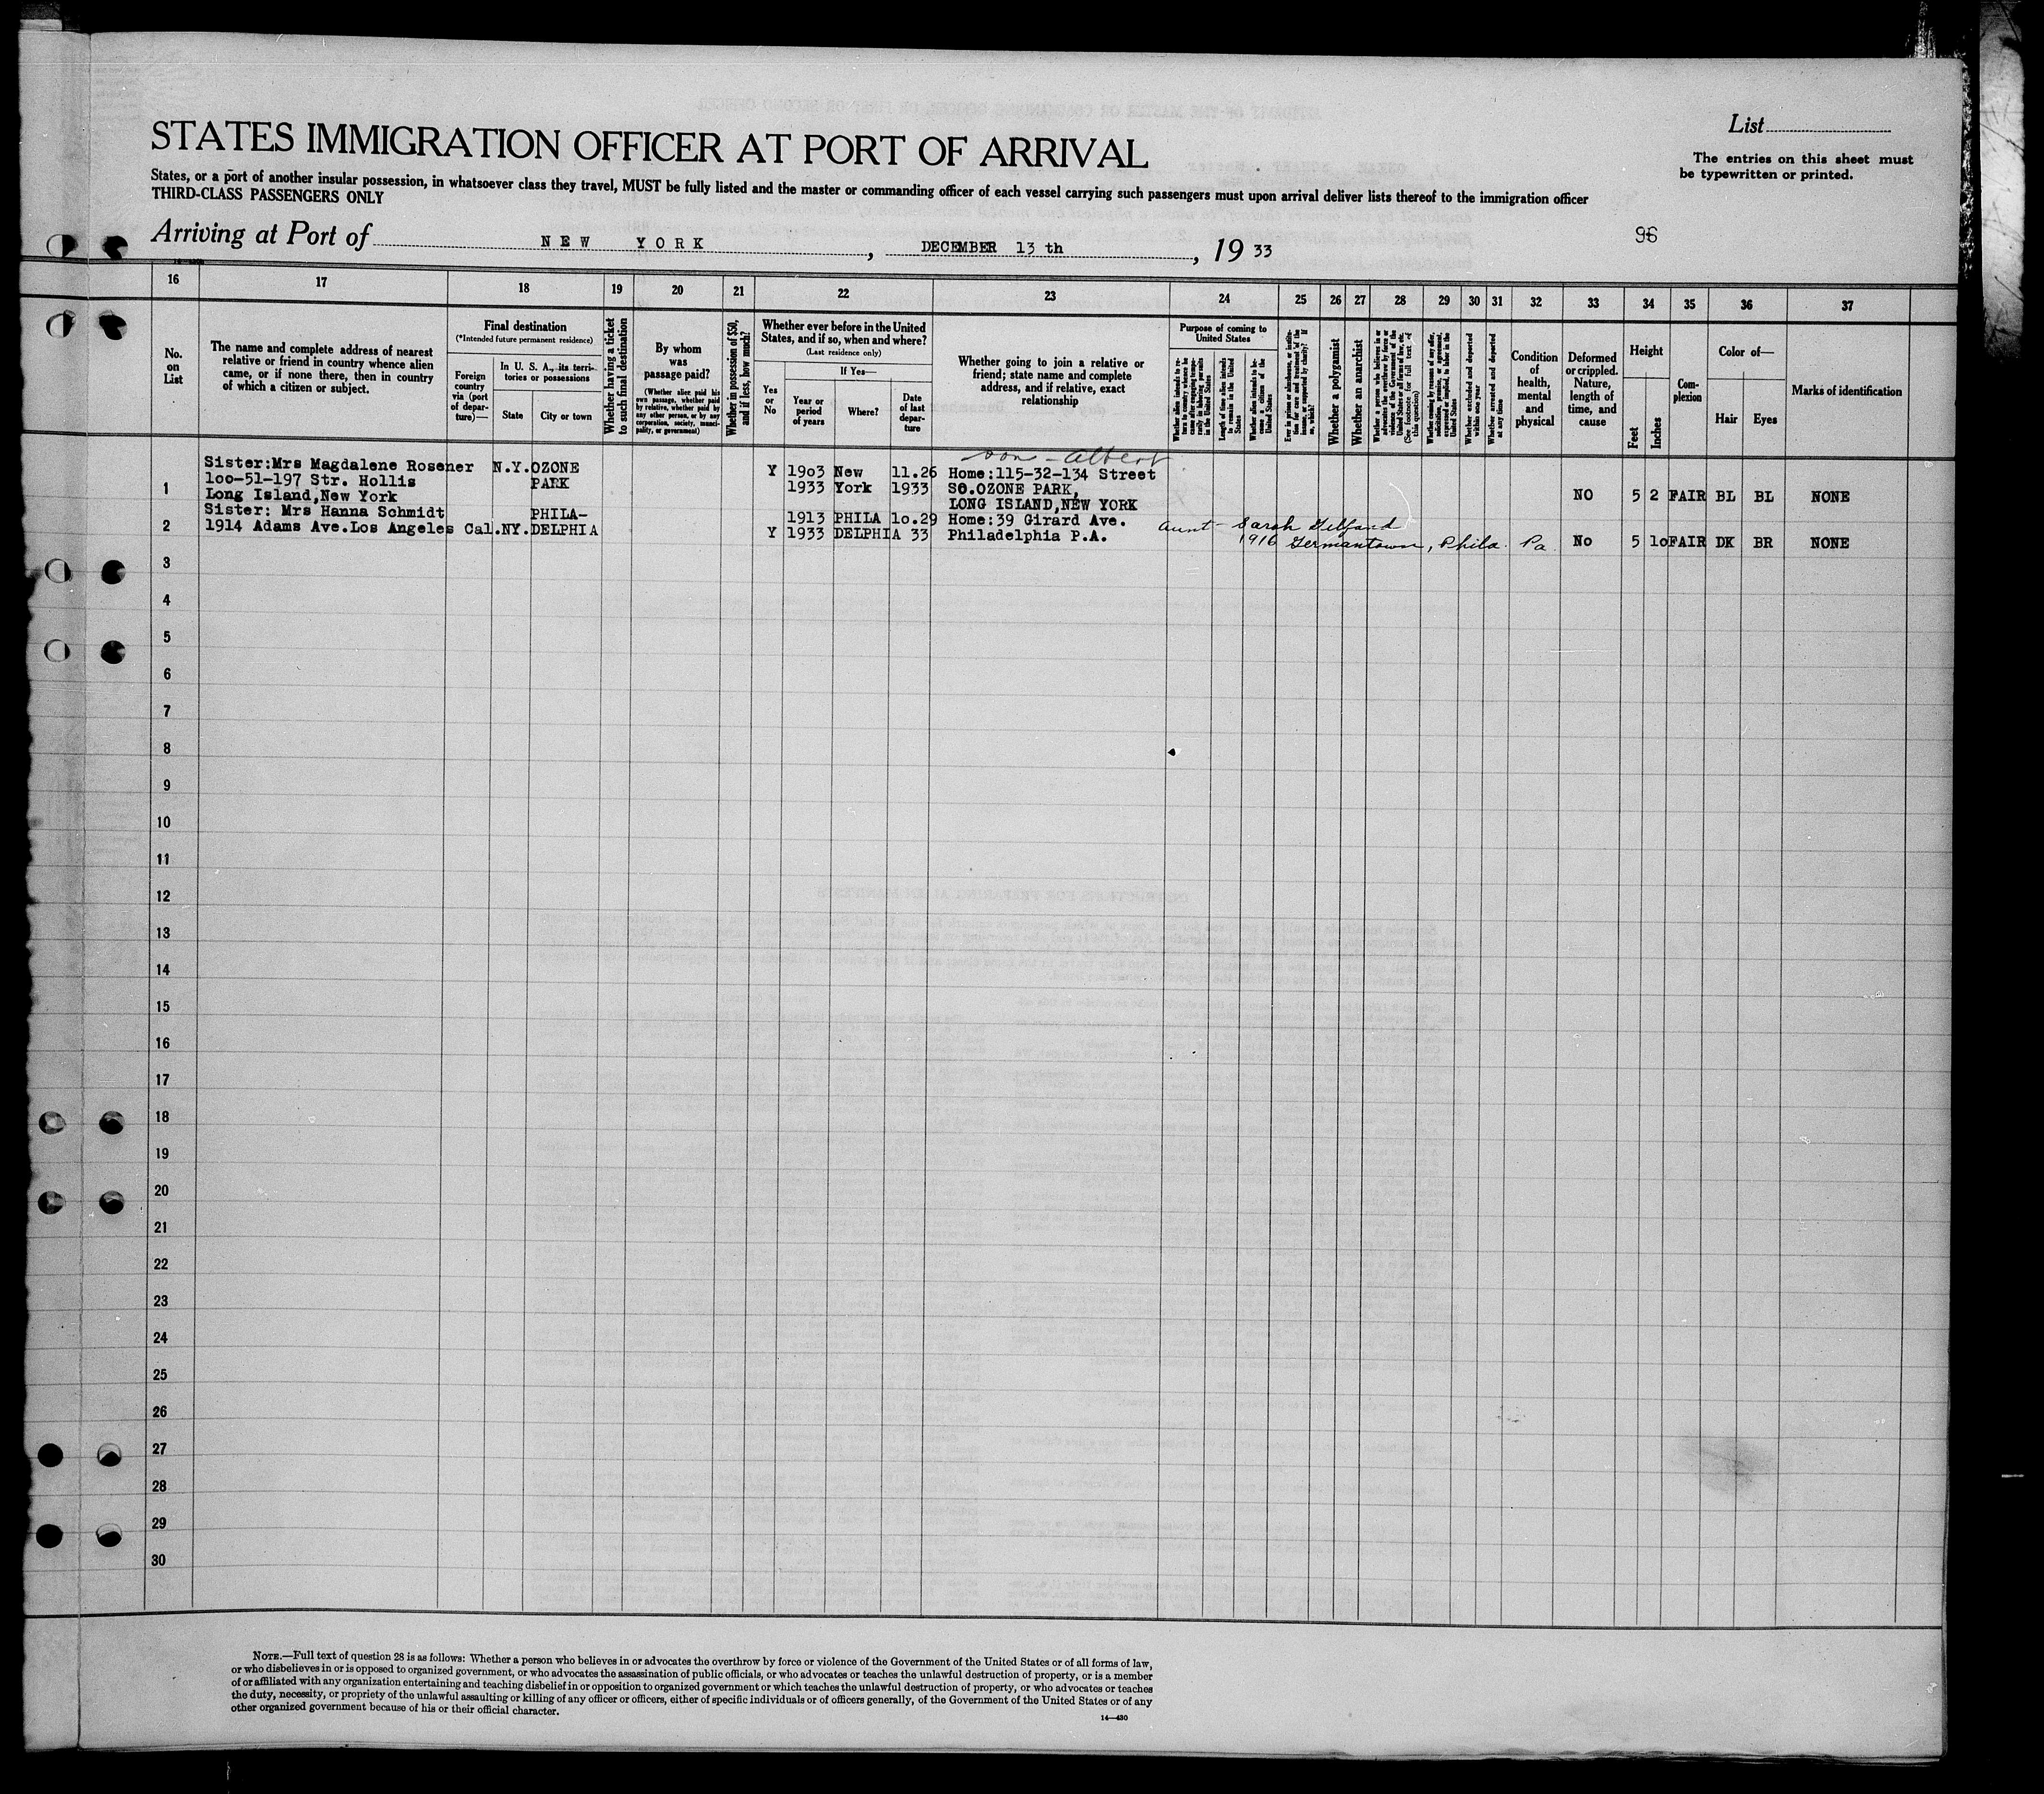 STATES IMMIGRATION OFFICER AT PORT OF ARRIVAL
List
The entries on this sheet must
be typewritten or printed.
States, or a port of another insular possession, in whatsoever class they travel, MUST be fully listed and the master or commanding officer of each vessel carrying such passengers must upon arrival deliver lists thereof to the immigration officer
THIRD-CLASS PASSENGERS ONLY
Arriving at Port of NEW YORK, DECEMBER 13 th, 1933
96
16 17 18 19 20 21 22 23 24 25 26 27 28 29 30 31 32 33 34 35 36 37
No.
on
List
The name and complete address of nearest
relative or friend in country whence alien
came, or if none there, then in country
of which a citizen or subject.
Final destination
(*Intended future permanent residence)
Foreign
country
via (port
of depar-
ture)—
In U. S. A., its terri-
tories or possessions
State
City or town
Whether having a ticket
to such final destination
By whom
was
passage paid?
(Whether alien paid his
own passage, whether paid
by relative, whether paid by
any other person, or by any
corporation, society, munici-
pality, or government)
Whether in possession of $50,
and if less, how much?
Whether ever before in the United
States, and if so, when and where?
(Last residence only)
Yes
or
No
If Yes—
Year or
period
of years
Where?
Date
of last
depar-
ture
Whether going to join a relative or
friend; state name and complete
address, and if relative, exact
relationship
Purpose of coming to
United States
Whether alien intends to re-
turn to country whence he
came after engaging tempo-
rarily in laboring pursuits
in the United States
Length of time alien intends
to remain in the United
States
Whether alien intends to be-
come a citizen of the
United States
Ever in prison or almshouse, or institu-
tion for care and treatment of the
insane, or supported by charity? If
so, which?
Whether a polygamist
Whether an anarchist
Whether a person who believes in or
advocates the overthrow by force or
violence of the Government of the
United States or all forms of law, etc.
(See footnote for full text of
this question)
Whether coming by reason of any offer,
solicitation, promise, or agreement,
expressed or implied, to labor in the
United States
Whether excluded and deported
within one year
Whether arrested and deported
at any time
Condition
of
health,
mental
and
physical
Deformed
or crippled.
Nature,
length of
time, and
cause
Height
Feet
Inches
Com-
plexion
Color of—
Hair
Eyes
Marks of identification
son - Albert
Sister:Mrs Magdalene Rosener N.Y. OZONE Y 19o3 New 11.26 Home:115-32-134 Street
1oo-51-197 Str. Hollis PARK 1933 York 1933 SO.OZONE PARK,
1 Long Island,New York LONG ISLAND,NEW YORK NO 5 2 FAIR BL BL NONE
Sister: Mrs Hanna Schmidt PHILA- 1913 PHILA 1o.29 Home:39 Girard Ave.
2 1914 Adams Ave.Los Angeles Cal.NY. DELPHIA Y 1933 DELPHIA 33 Philadelphia P.A.
Aunt - Sarah Gelfand
1916 Germantown, Phila. Pa. No 5 1o FAIR DK BR NONE
3
4
5
6
7
8
9
10
11
12
13
14
15
16
17
18
19
20
21
22
23
24
25
26
27
28
29
30
NOTE.—Full text of question 28 is as follows: Whether a person who believes in or advocates the overthrow by force or violence of the Government of the United States or of all forms of law,
or who disbelieves in or is opposed to organized government, or who advocates the assassination of public officials, or who advocates or teaches the unlawful destruction of property, or is a member
of or affiliated with any organization entertaining and teaching disbelief in or opposition to organized government or which teaches the unlawful destruction of property, or who advocates or teaches
the duty, necessity, or propriety of the unlawful assaulting or killing of any officer or officers, either of specific individuals or of officers generally, of the Government of the United States or of any
other organized government because of his or their official character.
14—430